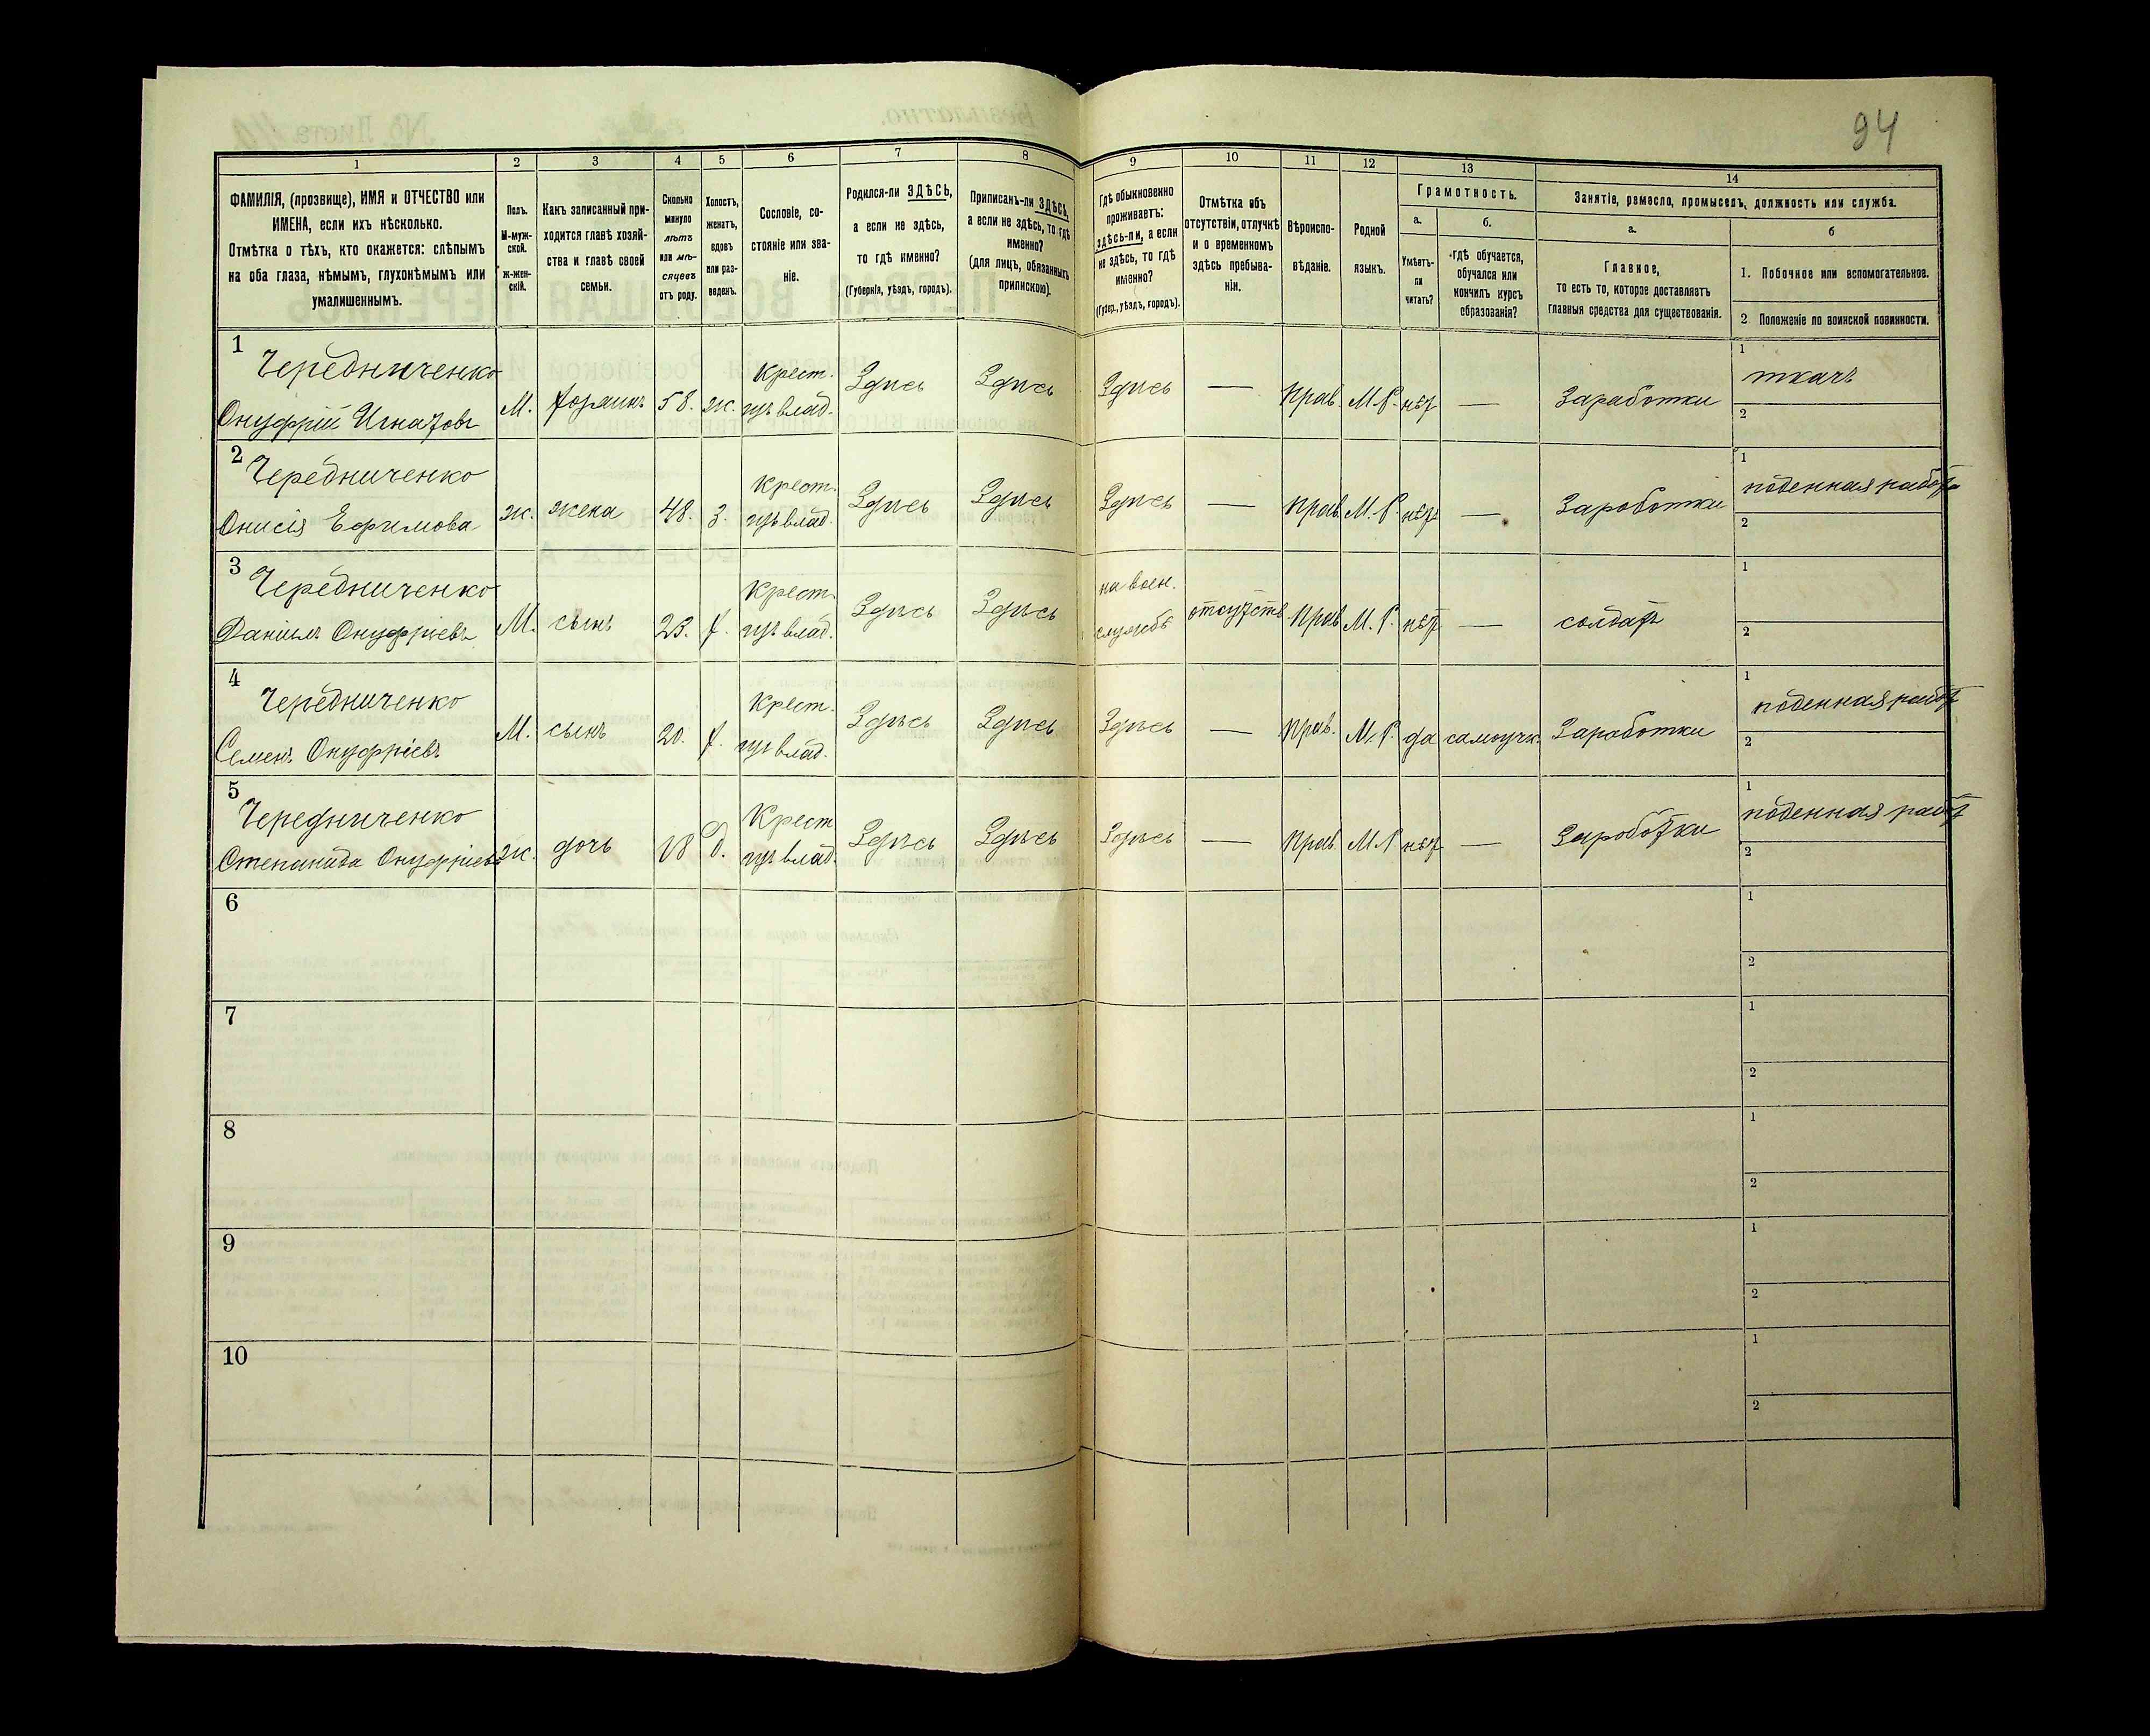 94
1 2 3 4 5 6 7 8 9 10 11 12 13 14
ФАМИЛІЯ, (прозвище), ИМЯ и ОТЧЕСТВО или
ИМЕНА, если ихъ нѣсколько.
Отмѣтка о тѣхъ, кто окажется: слѣпымъ
на оба глаза, нѣмымъ, глухонѣмымъ или
умалишеннымъ.
Полъ.
М-муж-
ской.
ж-жен-
скій.
Какъ записанный при-
ходится главѣ хозяй-
ства и главѣ своей
семьи.
Сколько
минуло
лѣтъ
или мѣ-
сяцевъ
отъ роду.
Холостъ,
женатъ,
вдовъ
или раз-
веденъ.
Сословіе, со-
стояніе или зва-
ніе.
Родился-ли ЗДѢСЬ,
а если не здѣсь,
то гдѣ именно?
(Губернія, уѣздъ, городъ).
Приписанъ-ли ЗДѢСЬ,
а если не здѣсь, то гдѣ
именно?
(для лицъ, обязанныхъ
припискою).
Гдѣ обыкновенно
проживаетъ:
здѣсь-ли, а если
не здѣсь, то гдѣ
именно?
(Губер., уѣздъ, городъ).
Отмѣтка объ
отсутствіи, отлучкѣ
и о временномъ
здѣсь пребыва-
ніи.
Вѣроиспо-
вѣданіе.
Родной
языкъ.
Грамотность.
а.
Умѣетъ-
ли
читать?
б.
гдѣ обучается,
обучался или
кончилъ курсъ
образованія?
Занятіе, ремесло, промыселъ, должность или служба.
а.
Главное,
то есть то, которое доставляетъ
главныя средства для существованія.
б
1. Побочное или вспомогательное.
2. Положеніе по воинской повинности.
1 Чередниченко Крест. 1 ткачъ
Онуфрій Игнатовъ М. хозяинъ 58. ж. изъ влад. Здѣсь Здѣсь Здѣсь — Прав. М.Р. нѣт — Заработки 2
2 Чередниченко Крест. 1 поденная работа
Онисія Ефимова ж. жена 48. З. изъ влад. Здѣсь Здѣсь Здѣсь — Прав. М.Р. нѣт — Заработки 2
3 Чередниченко Крест. на воен. 1
Даніилъ Онуфріевъ М. сынъ 23. х. изъ влад. Здѣсь Здѣсь службѣ отсутств Прав М.Р. нѣт — солдат 2
4 Чередниченко Крест. 1 поденная работ
Семенъ Онуфріевъ М. сынъ 20. х. изъ влад. Здѣсь Здѣсь Здѣсь — Прав. М.Р. да самоучк. Заработки 2
5 Чередниченко Крест 1 поденная работ
Степанида Онуфріева ж. дочь 18 д. изъ влад. Здѣсь Здѣсь Здѣсь — Прав. М.Р. нѣт — Заработки 2
6 1
2
7 1
2
8 1
2
9 1
2
10 1
2